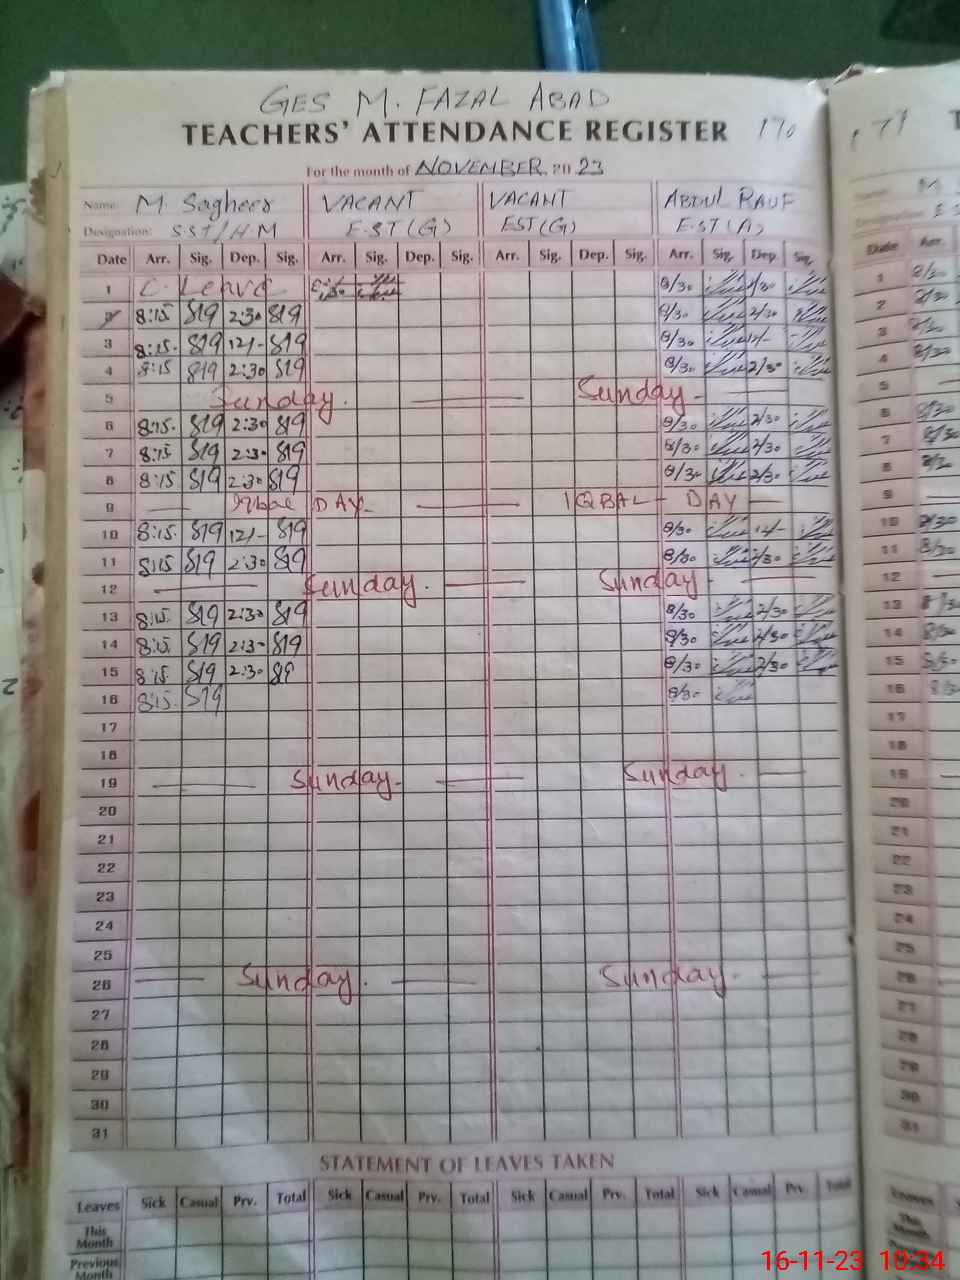 GES M. FAZAL ABAD
TEACHERS' ATTENDANCE REGISTER 170
For the month of NOVEMBER, 2023
Name: M. Sagheer VACANT VACANT ABDUL RAUF
Designation: S.ST/H.M E.ST(G) EST(G) E.ST(A)
Date Arr. Sig. Dep. Sig. Arr. Sig. Dep. Sig. Arr. Sig. Dep. Sig. Arr. Sig. Dep. Sig.
1 C. Leave 8/30 2/30
2 8:15 2:30 8/30 2/30
3 8:15. 12/- 8/30 12/-
4 8:15 2:30 8/30 2/30
5 Sunday. Sunday.
6 8:15. 2:30 8/30 2/30
7 8:15 2:30 8/30 2/30
8 8:15 2:30 8/30 2/30
9 Iqbal DAY IQBAL DAY
10 8:15. 12/- 8/30 12/-
11 8:15 2:30 8/30 2/30
12 Sunday. Sunday
13 8:15. 2:30 8/30 2/30
14 8:15. 2:30 8/30 2/30
15 8:15. 2:30 8/30 2/30
16 8:15. 8/30
17
18
19 Sunday. Sunday.
20
21
22
23
24
25
26 Sunday. Sunday.
27
28
29
30
31
STATEMENT OF LEAVES TAKEN
Leaves Sick Casual Prv. Total Sick Casual Prv. Total Sick Casual Prv. Total Sick Casual Prv. Total
This Month
Previous Month
171
Date Arr.
1 8/30
2 8/30
3 8/30
4 8/30
5
6 8/30
7 8/30
8 8/30
9
10 8/30
11 8/30
12
13 8/30
14 8/30
15 8/30
16 8/30
17
18
19
20
21
22
23
24
25
26
27
28
29
30
31
Leaves
16-11-23 10:34